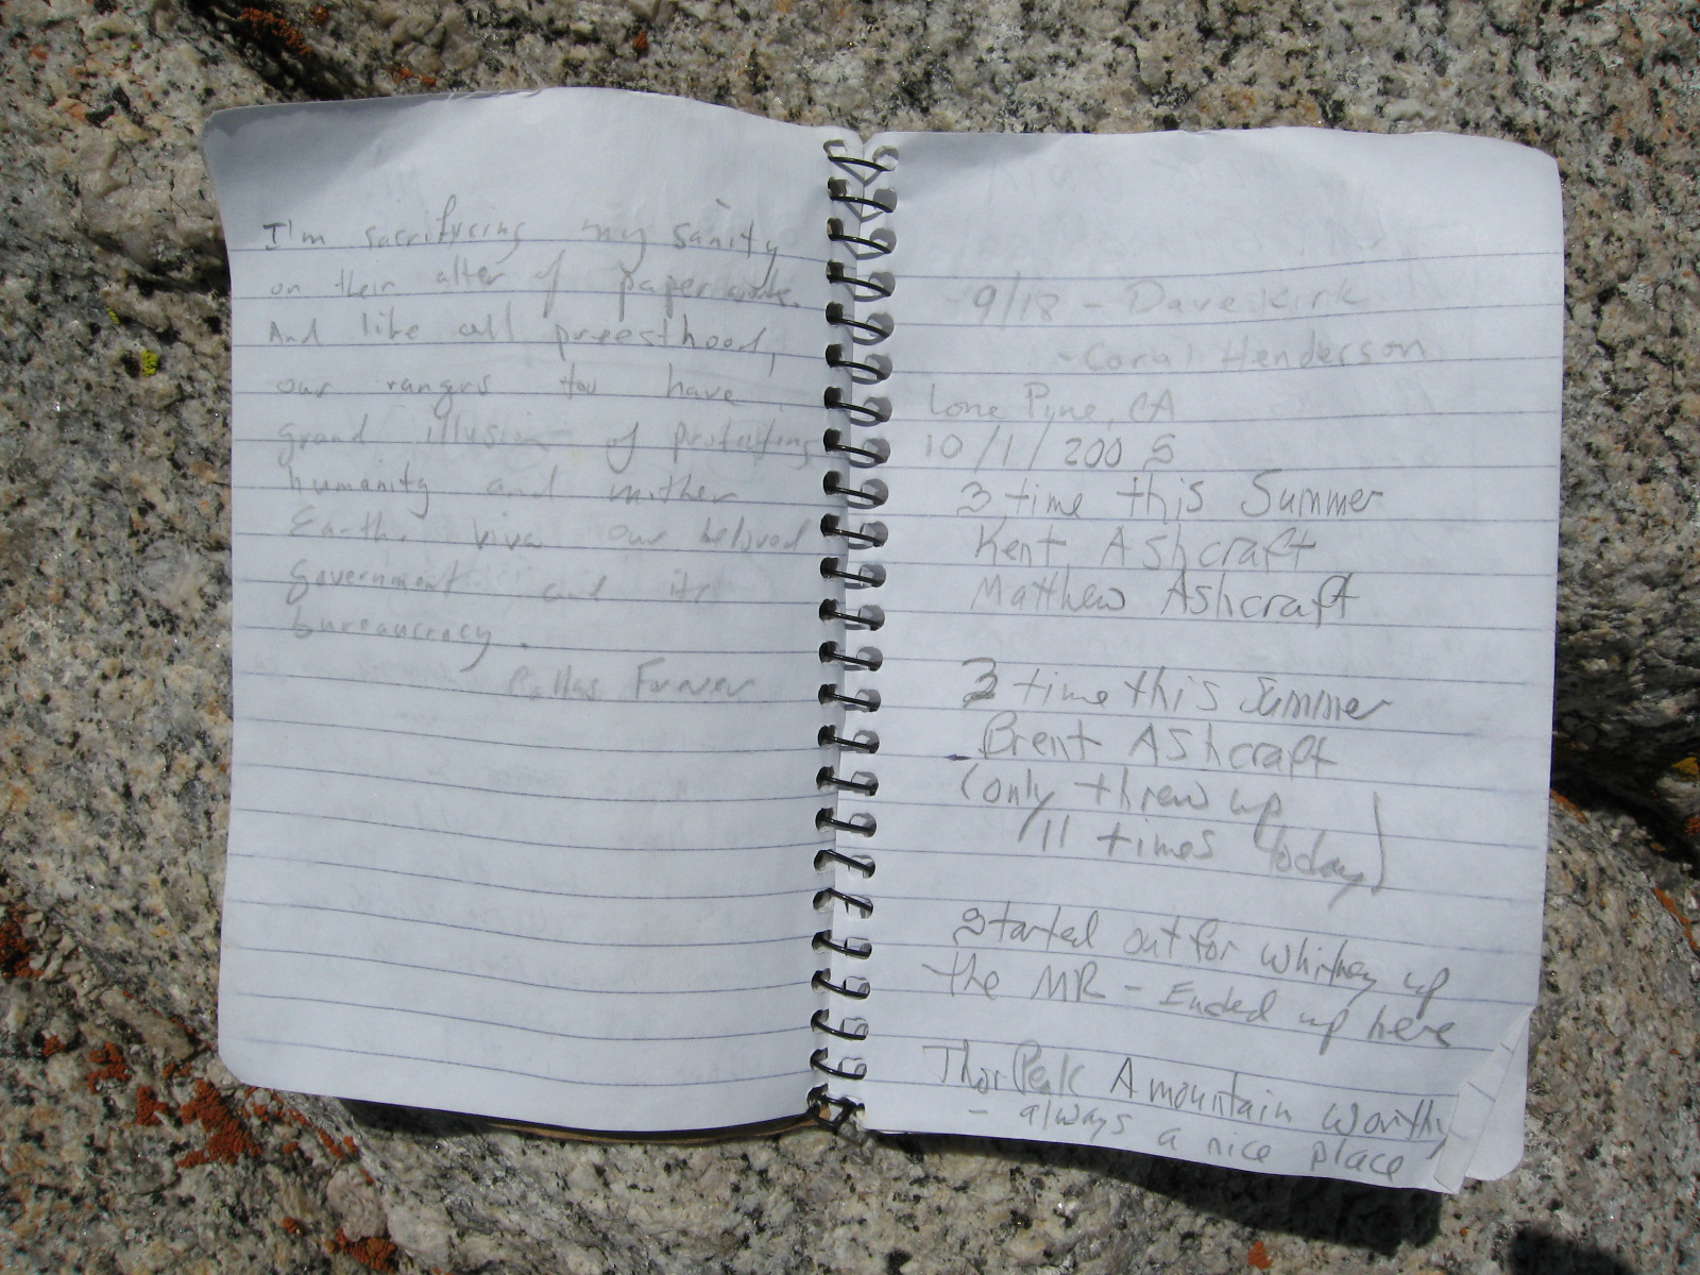 I'm sacrifycing my sanity
on their alter of paperwork.
And like all preesthood,
our rangers too have
grand illusion of protecting
humanity and mother
Earth. Viva our beloved
government and its
bureaucracy.
Forever
9/18 - Dave Kirk
- Coral Henderson
Lone Pyne, CA
10/1/2005
3 time this Summer
Kent Ashcraft
Matthew Ashcraft
3 time this Summer
Brent Ashcraft
(only threw up
11 times today)
Started out for Whitney up
the MR - Ended up here
Thor Peak A mountain worthy
- always a nice place